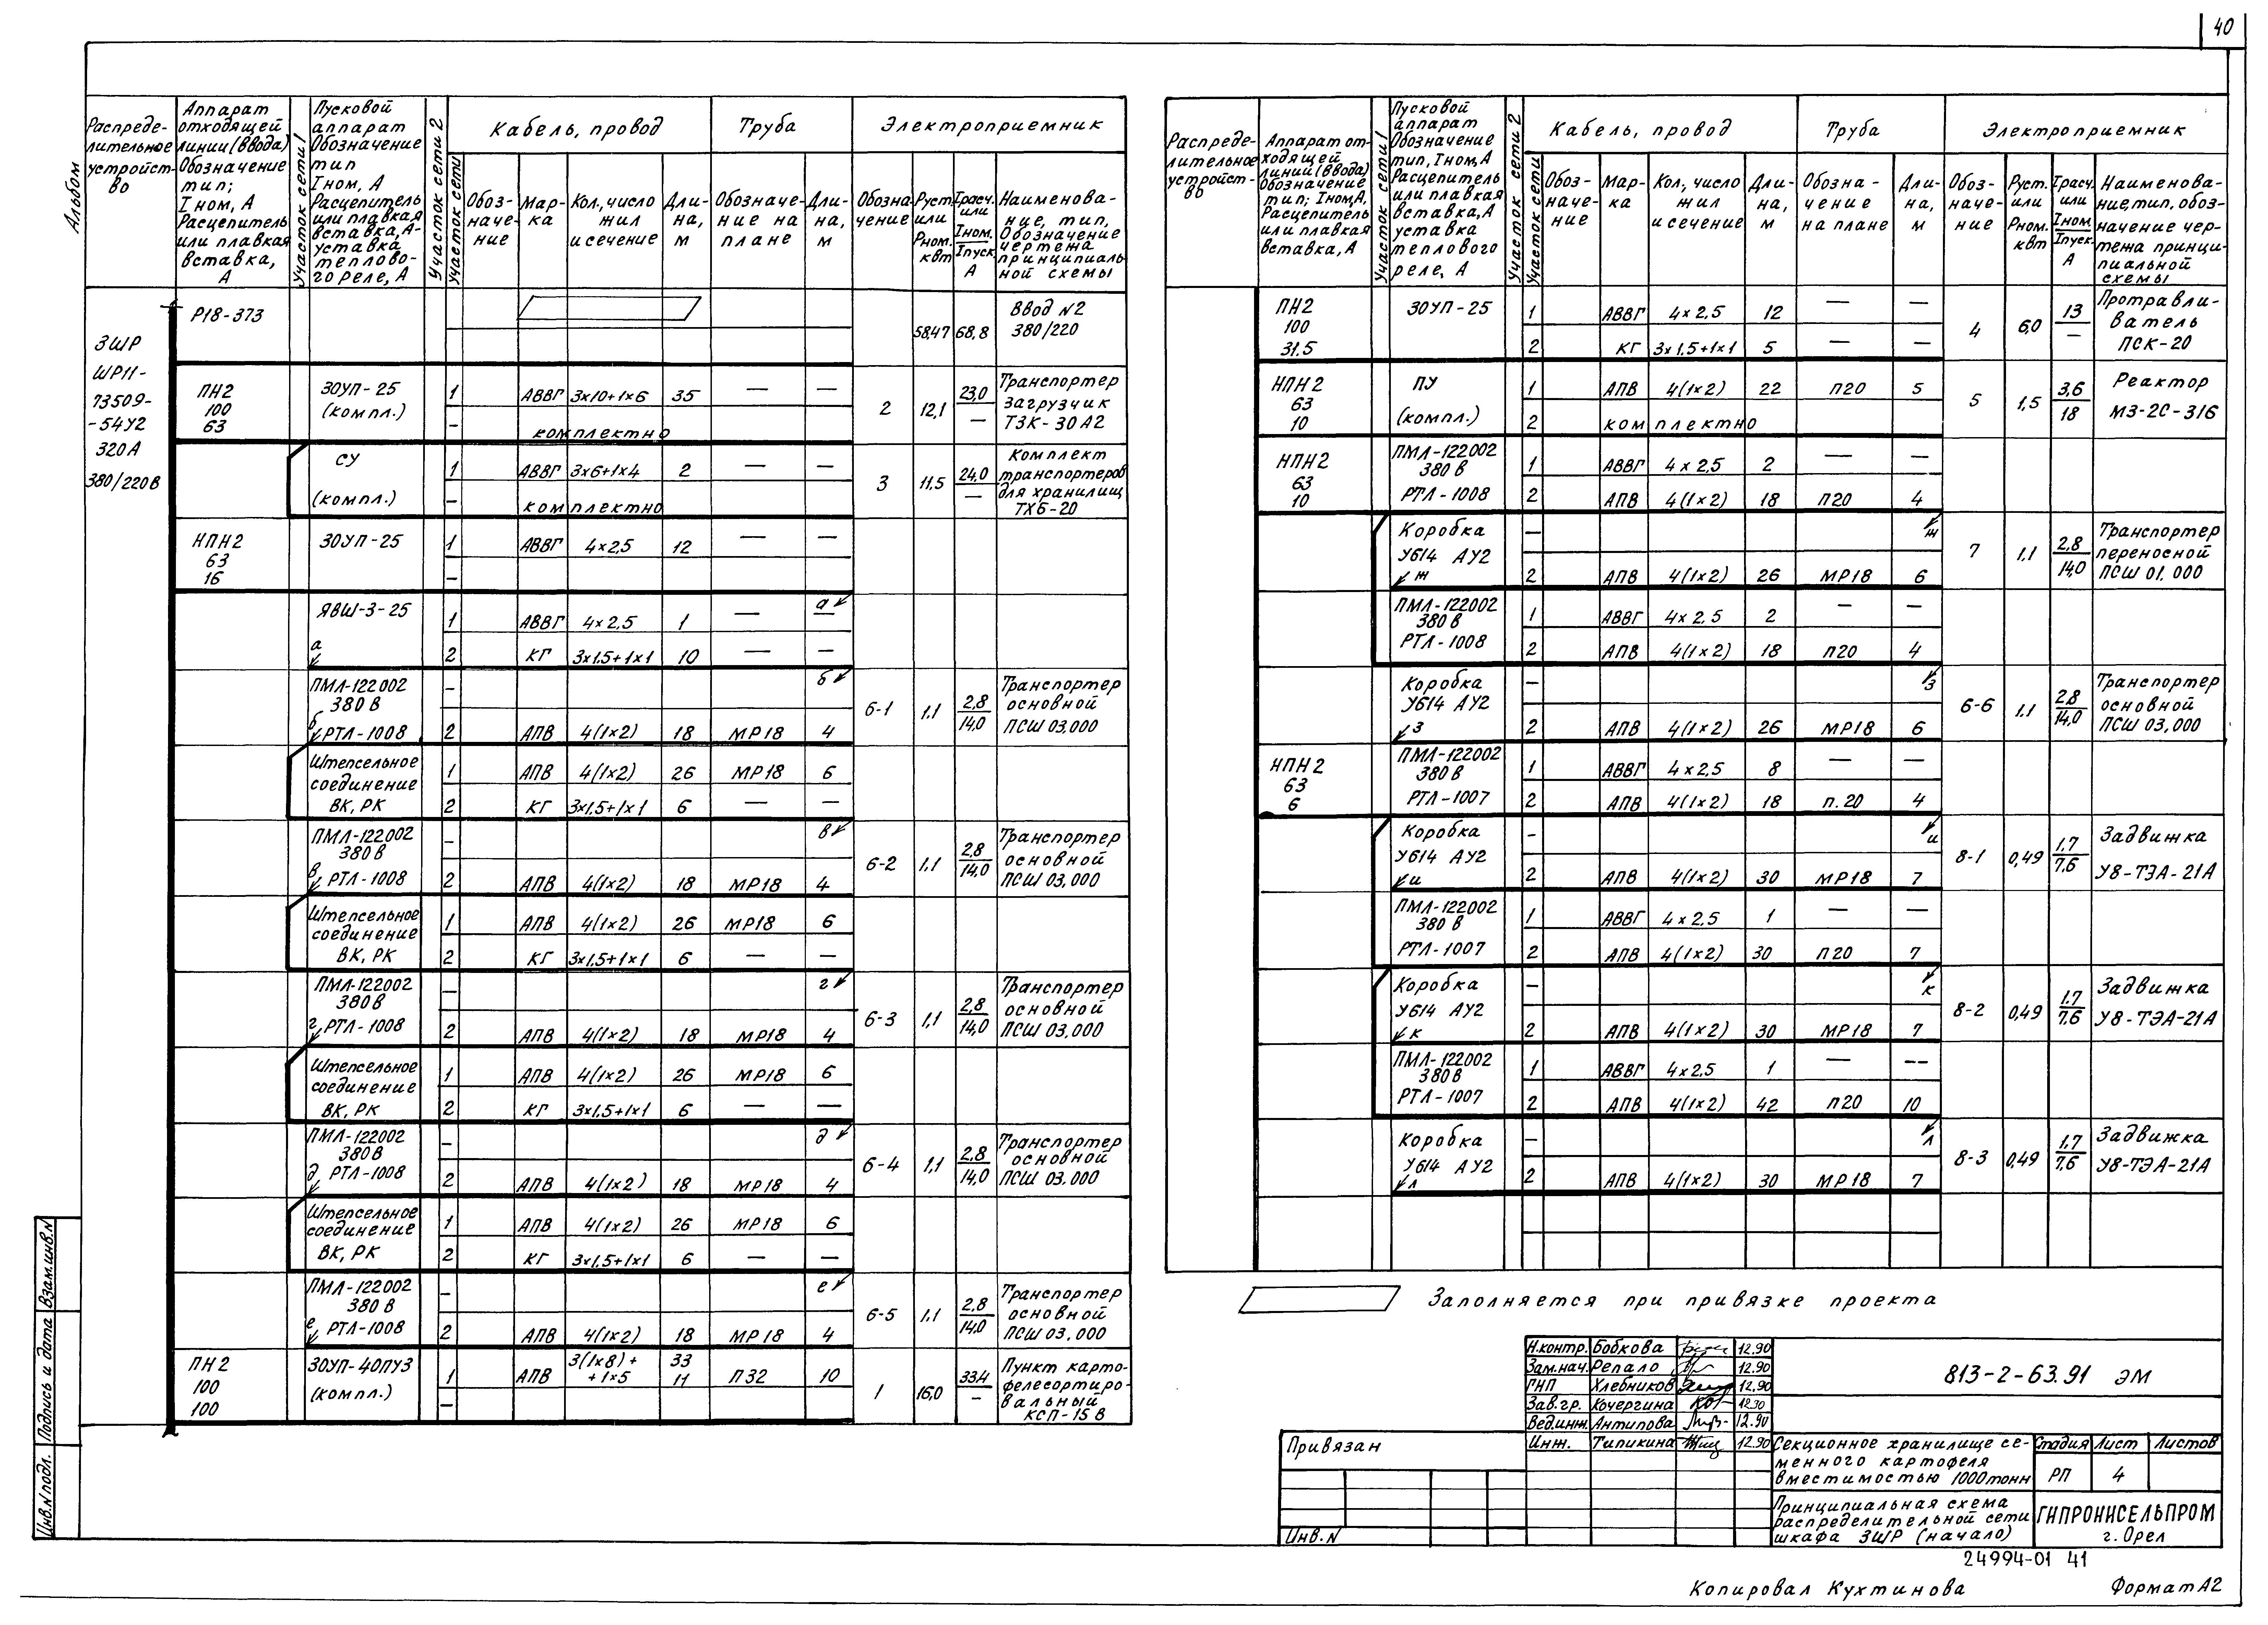 40
Альбом
Распреде-
лительное
устройст-
во
Аппарат
отходящей
линии (ввода)
Обозначение
тип;
Iном, А
Расцепитель
или плавкая
вставка,
А
Участок сети 1
Пусковой
аппарат
Обозначение
тип
Iном, А
Расцепитель
или плавкая
вставка, А-
уставка
теплово-
го реле, А
Участок сети 2
Участок сети
Кабель, провод
Обоз-
наче-
ние
Мар-
ка
Кол., число
жил
и сечение
Дли-
на,
м
Труба
Обозначе-
ние на
плане
Дли-
на,
м
Электроприемник
Обозна-
чение
Руст.
или
Рном.
квт
Iрасч.
или
Iном.
Iпуск
А
Наименова-
ние, тип,
Обозначение
чертежа
принципиаль-
ной схемы
3ШР
ШР11-
73509-
-54У2
320А
380/220В
Р18-373
58,47 68,8
Ввод №2
380/220
ПН2
100
63
ЗОУП-25
(компл.)
1 АВВГ 3х10+1х6 35 — —
-
комплектно
2 12,1 23,0
—
Транспортер
загрузчик
ТЗК-30А2
СУ
(компл.)
1 АВВГ 3х6+1х4 2 — —
-
комплектно
3 11,5 24,0
—
Комплект
транспортеров
для хранилищ
ТХБ-20
НПН2
63
16
ЗОУП-25
1 АВВГ 4х2,5 12 — —
-
ЯВШ-3-25
а
а
1 АВВГ 4х2,5 1 — —
2 КГ 3х1,5+1х1 10 — —
ПМЛ-122002
380В
б РТЛ-1008
б
-
2 АПВ 4(1х2) 18 МР18 4
6-1 1,1 2,8
14,0
Транспортер
основной
ПСШ 03.000
Штепсельное
соединение
ВК, РК
1 АПВ 4(1х2) 26 МР18 6
2 КГ 3х1,5+1х1 6 — —
ПМЛ-122002
380В
в РТЛ-1008
в
-
2 АПВ 4(1х2) 18 МР18 4
6-2 1,1 2,8
14,0
Транспортер
основной
ПСШ 03.000
Штепсельное
соединение
ВК, РК
1 АПВ 4(1х2) 26 МР18 6
2 КГ 3х1,5+1х1 6 — —
ПМЛ-122002
380В
г РТЛ-1008
г
-
2 АПВ 4(1х2) 18 МР18 4
6-3 1,1 2,8
14,0
Транспортер
основной
ПСШ 03.000
Штепсельное
соединение
ВК, РК
1 АПВ 4(1х2) 26 МР18 6
2 КГ 3х1,5+1х1 6 — —
ПМЛ-122002
380В
д РТЛ-1008
д
-
2 АПВ 4(1х2) 18 МР18 4
6-4 1,1 2,8
14,0
Транспортер
основной
ПСШ 03.000
Штепсельное
соединение
ВК, РК
1 АПВ 4(1х2) 26 МР18 6
2 КГ 3х1,5+1х1 6 — —
ПМЛ-122002
380В
е РТЛ-1008
е
-
2 АПВ 4(1х2) 18 МР18 4
6-5 1,1 2,8
14,0
Транспортер
основной
ПСШ 03.000
ПН2
100
100
ЗОУП-40ПУЗ
(компл.)
1 АПВ 3(1х8)+ 33
+1х5 11 П32 10
-
1 16,0 33,4
—
Пункт карто-
фелесортиро-
вальный
КСП-15В
Распреде-
лительное
устройст-
во
Аппарат от-
ходящей
линии (ввода)
Обозначение
тип; Iном, А,
Расцепитель
или плавкая
вставка, А
Участок сети 1
Пусковой
аппарат
Обозначение
тип, Iном, А
Расцепитель
или плавкая
вставка, А
уставка
теплового
реле, А
Участок сети 2
Участок сети
Кабель, провод
Обоз-
наче-
ние
Мар-
ка
Кол., число
жил
и сечение
Дли-
на,
м
Труба
Обозна-
чение
на плане
Дли-
на,
м
Электроприемник
Обоз-
наче-
ние
Руст.
или
Рном.
квт
Iрасч.
или
Iном.
Iпуск
А
Наименова-
ние, тип, обоз-
начение чер-
тежа принци-
пиальной
схемы
ПН2
100
31,5
ЗОУП-25
1 АВВГ 4х2,5 12 — —
2 КГ 3х1,5+1х1 5 — —
4 6,0 13
—
Протрави-
ватель
ПСК-20
НПН2
63
10
ПУ
(компл.)
1 АПВ 4(1х2) 22 П20 5
2 комплектно
5 1,5 3,6
18
Реактор
МЗ-2С-316
НПН2
63
10
ПМЛ-122002
380В
РТЛ-1008
1 АВВГ 4х2,5 2 — —
2 АПВ 4(1х2) 18 П20 4
Коробка
У614 АУ2
ж
- ж
2 АПВ 4(1х2) 26 МР18 6
7 1,1 2,8
14,0
Транспортер
переносной
ПСШ 01.000
ПМЛ-122002
380В
РТЛ-1008
1 АВВГ 4х2,5 2 — —
2 АПВ 4(1х2) 18 П20 4
Коробка
У614 АУ2
з
- з
2 АПВ 4(1х2) 26 МР18 6
6-6 1,1 2,8
14,0
Транспортер
основной
ПСШ 03.000
НПН2
63
6
ПМЛ-122002
380В
РТЛ-1007
1 АВВГ 4х2,5 8 — —
2 АПВ 4(1х2) 18 П.20 4
Коробка
У614 АУ2
и
- и
2 АПВ 4(1х2) 30 МР18 7
8-1 0,49 1,7
7,6
Задвижка
У8-ТЭА-21А
ПМЛ-122002
380В
РТЛ-1007
1 АВВГ 4х2,5 1 — —
2 АПВ 4(1х2) 30 П20 7
Коробка
У614 АУ2
к
- к
2 АПВ 4(1х2) 30 МР18 7
8-2 0,49 1,7
7,6
Задвижка
У8-ТЭА-21А
ПМЛ-122002
380В
РТЛ-1007
1 АВВГ 4х2,5 1 — --
2 АПВ 4(1х2) 42 П20 10
Коробка
У614 АУ2
л
- л
2 АПВ 4(1х2) 30 МР18 7
8-3 0,49 1,7
7,6
Задвижка
У8-ТЭА-21А
Заполняется при привязке проекта
Н.контр. Бобкова 12.90
Зам.нач. Репало 12.90
ГНП Хлебников 12.90
Зав.гр. Кочергина 12.90
Вед.инж. Антипова 12.90
Инж. Типикина 12.90
813-2-63.91 ЭМ
Секционное хранилище се-
менного картофеля
вместимостью 1000тонн
Стадия Лист Листов
РП 4
Принципиальная схема
распределительной сети
шкафа 3ШР (начало)
ГИПРОНИСЕЛЬПРОМ
г. Орел
Привязан
Инв.N
Инв.Nподл. Подпись и дата Взам.инв.N
24994-01 41
Копировал Кухтинова Формат А2